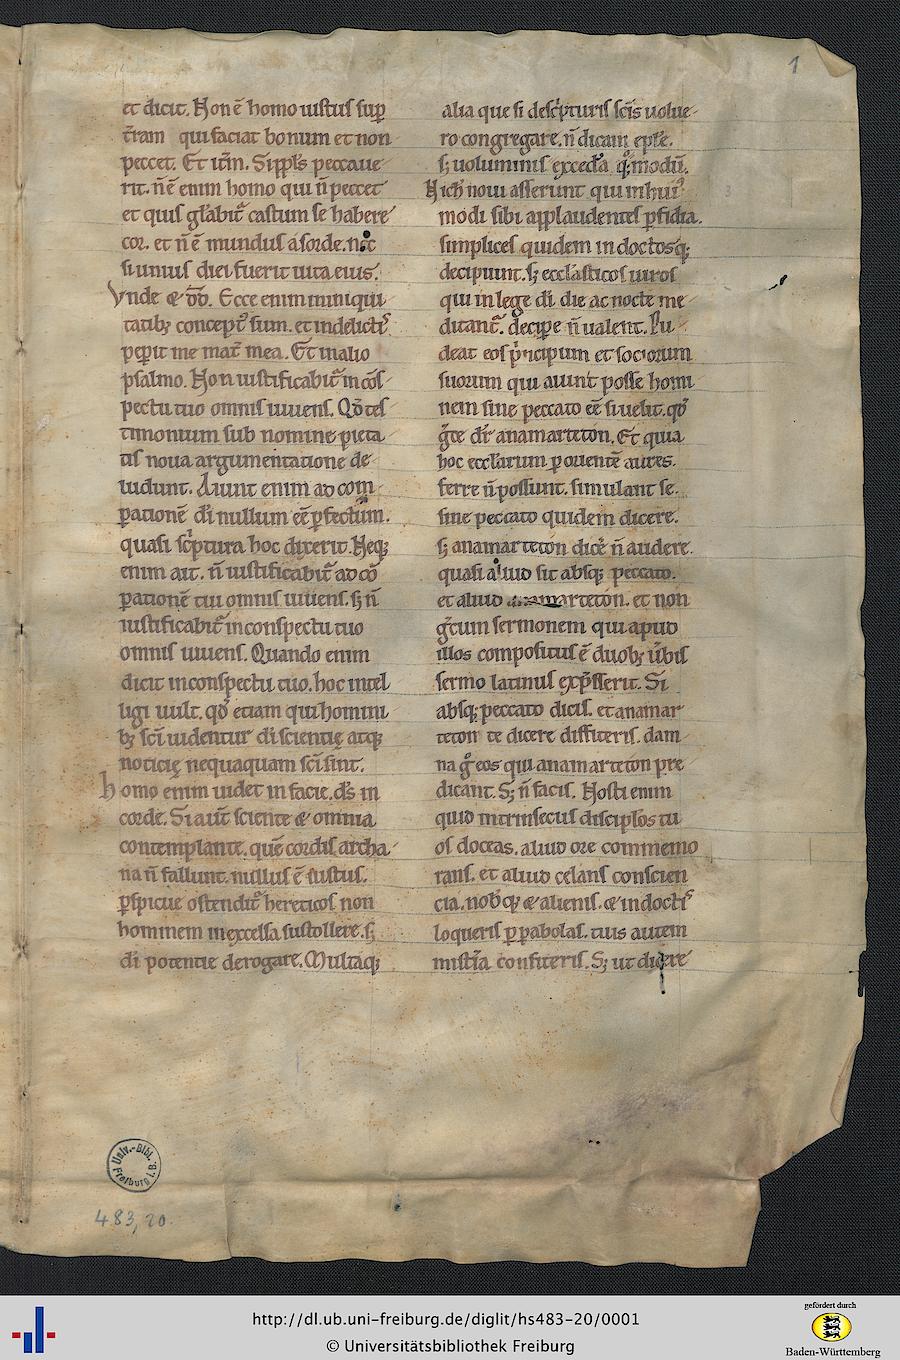 1
et dicit. Non ē homo iustus sup
t̄ram qui faciat bonum et non
peccet. Et itm̄. Si ppl̄s peccaue
rit. n̄ ē enim homo qui n̄ peccet
et quis gl̄abit᷑ castum se habere
cor. et n̄ ē mundus a sorde. nec
si unius diei fuerit uita eius.
Vnde & dd̄. Ecce enim in iniqui
tatibꝫ concept᷒ sum. et in delictis
peperit me mat᷑ mea. Et in alio
psalmo. Non iustificabit᷑ in cōs
pectu tuo omnis uiuens. Qd̄ tes
timonium sub nomine pieta
tis noua argumentatione de
ludunt. Aiunt enim ad com
ꝑationē di nullum eē ꝑfectum.
quasi sc̄ptura hoc dixerit. Neqꝫ
enim ait. n̄ iustificabit᷑ ad cō
ꝑationē tui omnis uiuens. sꝫ n̄
iustificabit᷑ in conspectu tuo
omnis uiuens. Quando enim
dicit in conspectu tuo. hoc intel
ligi uult. qd̄ etiam qui homini
bꝫ sc̄i uidentur di scientię atqꝫ
noticię nequaquam sc̄i sint.
Homo enim uidet in facie. ds̄ in
corde. Si aut̄ sciente & omnia
contemplante. quē cordis archa
na n̄ fallunt. nullus ē iustus.
ꝑspicue ostendit᷑ hereticos non
hominem in excelsa sustollere. sꝫ
di potentie derogare. Multaqꝫ
alia que si de sc̄pturis sc̄is uolue
ro congregare. n̄ dicam epl̄e.
sꝫ uoluminis excedā modū.
Nich noui asserunt qui in hui᷒
modi sibi applaudentes ꝑfidia.
simplices quidem indoctosqꝫ
decipiunt. sꝫ eccl̄asticos uiros
qui in lege di die ac nocte me
ditant᷑. decipe n̄ ualent. Pu
deat eos pⁱncipum et sociorum
suorum qui aiunt posse homi
nem sine peccato eē si uelit. qd̄
gͨte dr̄ anamarteton. Et quia
hoc eccl̄arum ꝑ ouentē aures.
ferre n̄ possunt. simulant se.
sine peccato quidem dicere.
sꝫ anamarteton dicē n̄ audere.
quasi aliud sit absqꝫ peccato.
et aliud anamarteton. et non
gͨcum sermonem qui apud
illos compositus ē duobꝫ ūbis
sermo latinus exp̄sserit. Si
absqꝫ peccato dicis. et anamar
teton te dicere diffiteris. dam
na gͦ eos qui anamarteton pre
dicant. Sꝫ n̄ facis. Nosti enim
quid intrinsecus discip̄los tu
os doceas. aliud ore commemo
rans. et aliud celans conscien
cia. nob̄qꝫ & alienis. & indoctis
loqueris ꝑ ꝑabolas. tuis autem
mistīa confiteris. Sꝫ ut dicere
Univ.-Bibl.
Freiburg i. B.
483,20.
http://dl.ub.uni-freiburg.de/diglit/hs483-20/0001
© Universitätsbibliothek Freiburg
gefördert durch
Baden-Württemberg